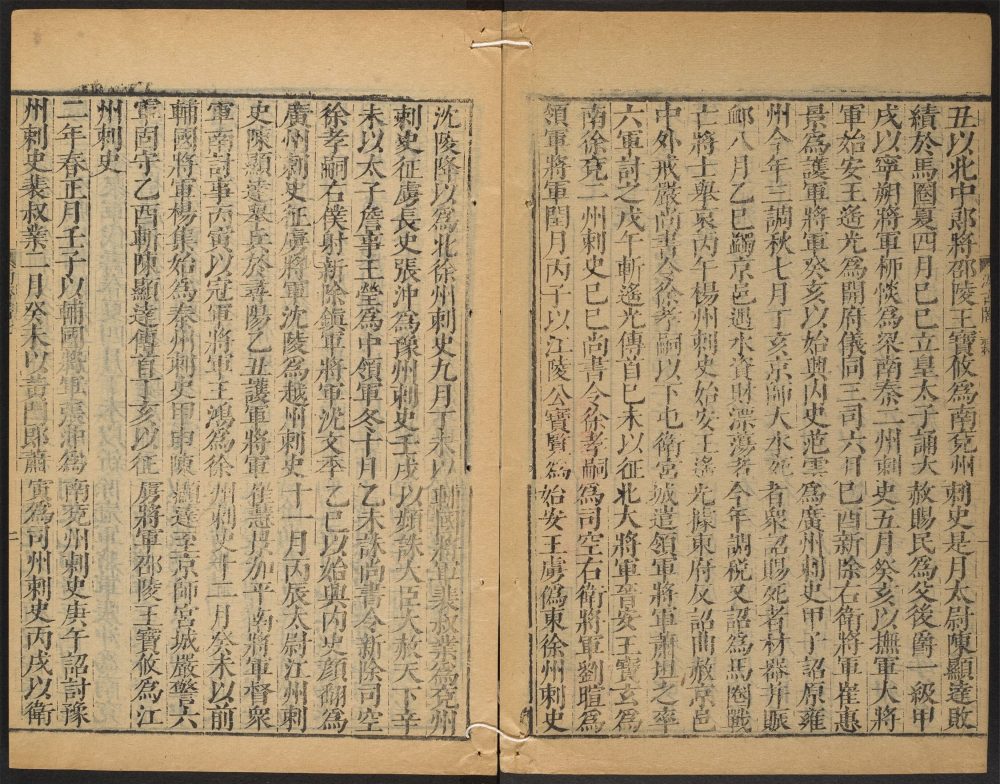 丑以北中郎將邵陵王寶攸為南兗州刺史是月太尉陳顯達敗
績於馬圈夏四月己巳立皇太子誦大赦賜民為父後爵一級甲
戌以寧朔將軍柳惔為梁南秦二州刺史五月癸亥以撫軍大將
軍始安王遙光為開府儀同三司六月己酉新除右衛將軍崔惠
景為護軍將軍癸亥以始興內史范雲為廣州刺史甲子詔原雍
州今年三調秋七月丁亥京師大水死者眾詔賜死者材器并賑
卹八月乙巳蠲京邑遇水資財漂蕩者今年調稅又詔為馬圈戰
亡將士舉哀丙午楊州刺史始安王遙光據東府反詔曲赦京邑
中外戒嚴尚書令徐孝嗣以下屯衛宮城遣領軍將軍蕭坦之率
六軍討之戊午斬遙光傳首己未以征北大將軍晉安王寶玄為
南徐兗二州刺史己巳尚書令徐孝嗣為司空右衛將軍劉暄為
領軍將軍閏月丙子以江陵公寶覽為始安王虜偽東徐州刺史
沈陵降以為北徐州刺史九月丁未以輔國將軍裴叔業為兗州
刺史征虜長史張沖為豫州刺史壬戌以頻誅大臣大赦天下辛
未以太子詹事王瑩為中領軍冬十月乙未誅尚書令新除司空
徐孝嗣右僕射新除鎮軍將軍沈文季乙巳以始興內史顏翻為
廣州刺史征虜將軍沈陵為越州刺史十一月丙辰太尉江州刺
史陳顯達舉兵於尋陽乙丑護軍將軍崔慧景加平南將軍督眾
軍南討事丙寅以冠軍將軍王鴻為徐州刺史十二月癸未以前
輔國將軍楊集始為秦州刺史甲申陳顯達至京師宮城嚴警六
軍固守乙酉斬陳顯達傳首丁亥以征虜將軍邵陵王寶攸為江
州刺史
二年春正月壬子以輔國將軍張沖為南兗州刺史庚午詔討豫
州刺史裴叔業二月癸未以黃門郎蕭寅為司州刺史丙戌以衛